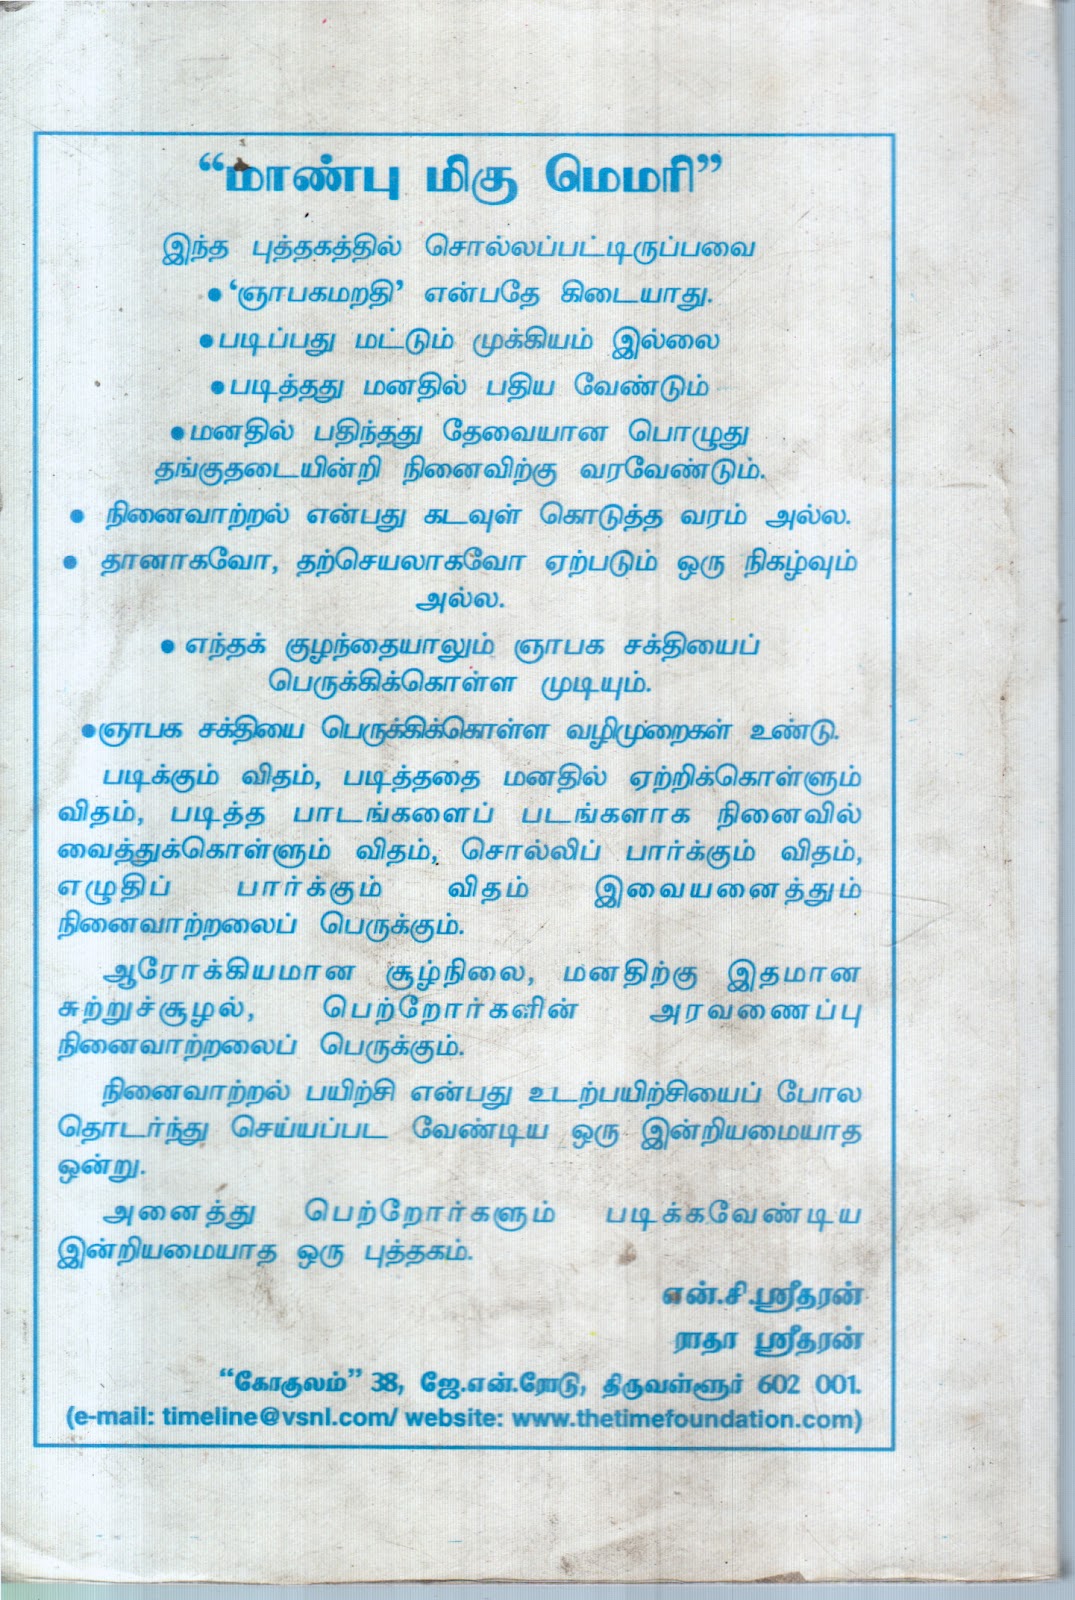 “மாண்பு மிகு மெமரி”
இந்த புத்தகத்தில் சொல்லப்பட்டிருப்பவை
●‘ஞாபகமறதி’ என்பதே கிடையாது.
●படிப்பது மட்டும் முக்கியம் இல்லை
●படித்தது மனதில் பதிய வேண்டும்
●மனதில் பதிந்தது தேவையான பொழுது
தங்குதடையின்றி நினைவிற்கு வரவேண்டும்.
● நினைவாற்றல் என்பது கடவுள் கொடுத்த வரம் அல்ல.
● தானாகவோ, தற்செயலாகவோ ஏற்படும் ஒரு நிகழ்வும்
அல்ல.
● எந்தக் குழந்தையாலும் ஞாபக சக்தியைப்
பெருக்கிக்கொள்ள முடியும்.
●ஞாபக சக்தியை பெருக்கிக்கொள்ள வழிமுறைகள் உண்டு.
படிக்கும் விதம், படித்ததை மனதில் ஏற்றிக்கொள்ளும்
விதம், படித்த பாடங்களைப் படங்களாக நினைவில்
வைத்துக்கொள்ளும் விதம், சொல்லிப் பார்க்கும் விதம்,
எழுதிப் பார்க்கும் விதம் இவையனைத்தும்
நினைவாற்றலைப் பெருக்கும்.
ஆரோக்கியமான சூழ்நிலை, மனதிற்கு இதமான
சுற்றுச்சூழல், பெற்றோர்களின் அரவணைப்பு
நினைவாற்றலைப் பெருக்கும்.
நினைவாற்றல் பயிற்சி என்பது உடற்பயிற்சியைப் போல
தொடர்ந்து செய்யப்பட வேண்டிய ஒரு இன்றியமையாத
ஒன்று.
அனைத்து பெற்றோர்களும் படிக்கவேண்டிய
இன்றியமையாத ஒரு புத்தகம்.
என்.சி.ஸ்ரீதரன்
ராதா ஸ்ரீதரன்
“கோகுலம்” 38, ஜே.என்.ரோடு, திருவள்ளூர் 602 001.
(e-mail: timeline@vsnl.com/ website: www.thetimefoundation.com)